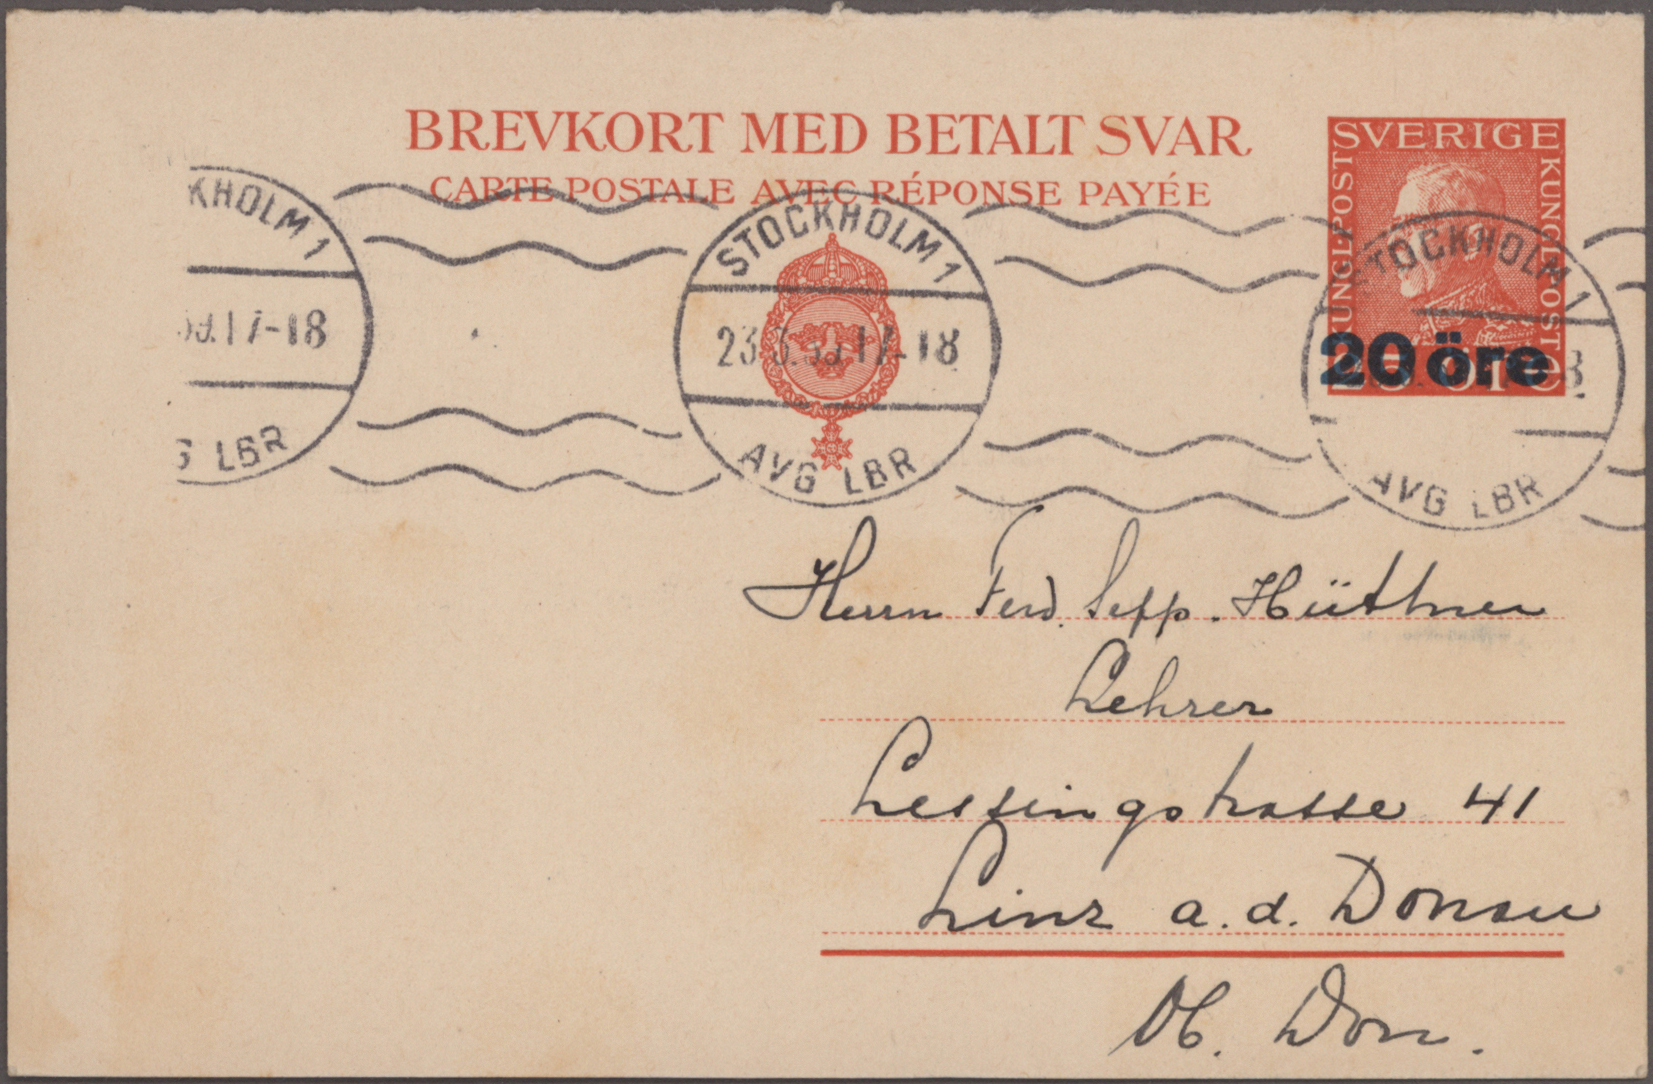 BREVKORT MED BETALT SVAR
CARTE POSTALE AVEC RÉPONSE PAYÉE
SVERIGE
KUNGL POST
KUNGL POST
20 öre
KHOLM 1
39.17-18
G LBR
STOCKHOLM 1
23.3.39.17-18
AVG LBR
STOCKHOLM 1
AVG LBR
Herrn Ferd. Sepp. Hüttner
Lehrer
Lessingstrasse 41
Linz a. d. Donau
Ob. Don.